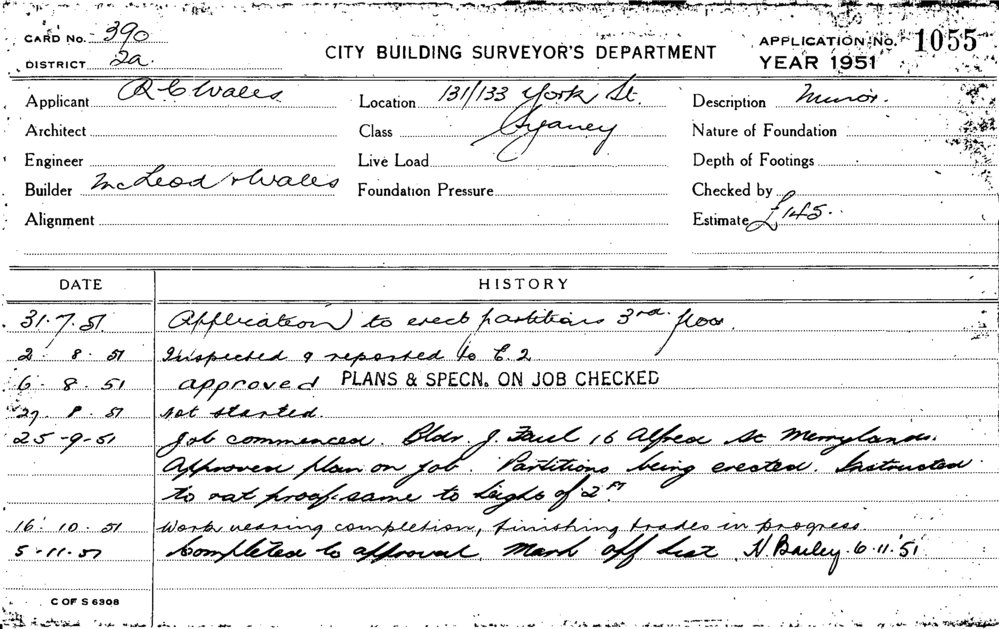 CARD No. 390
DISTRICT 2a
CITY BUILDING SURVEYOR'S DEPARTMENT
APPLICATION No. 1055
YEAR 1951
Applicant R C Wales
Location 131/133 York St.
Description Minor.
Architect
Class Sydney
Nature of Foundation
Engineer
Live Load
Depth of Footings
Builder McLeod & Wales
Foundation Pressure
Checked by
Alignment
Estimate £145..
DATE HISTORY
31.7.51 Application to erect partitions 3rd floor.
2. 8. 51 Inspected & reported to E.2
6. 8. 51 approved PLANS & SPECN. ON JOB CHECKED
29. 8. 51 Not started.
25-9-51 Job commenced. Bldr. J. Faul 16 Alfred St Merrylands.
Approved plan on job. Partitions being erected. Instructed
to rat proof same to height of 2 FT
16. 10. 51 Work nearing completion, finishing trades in progress.
5-11.51 Completed to approval Mark off list N Bailey. 6.11.51
C OF S 6308